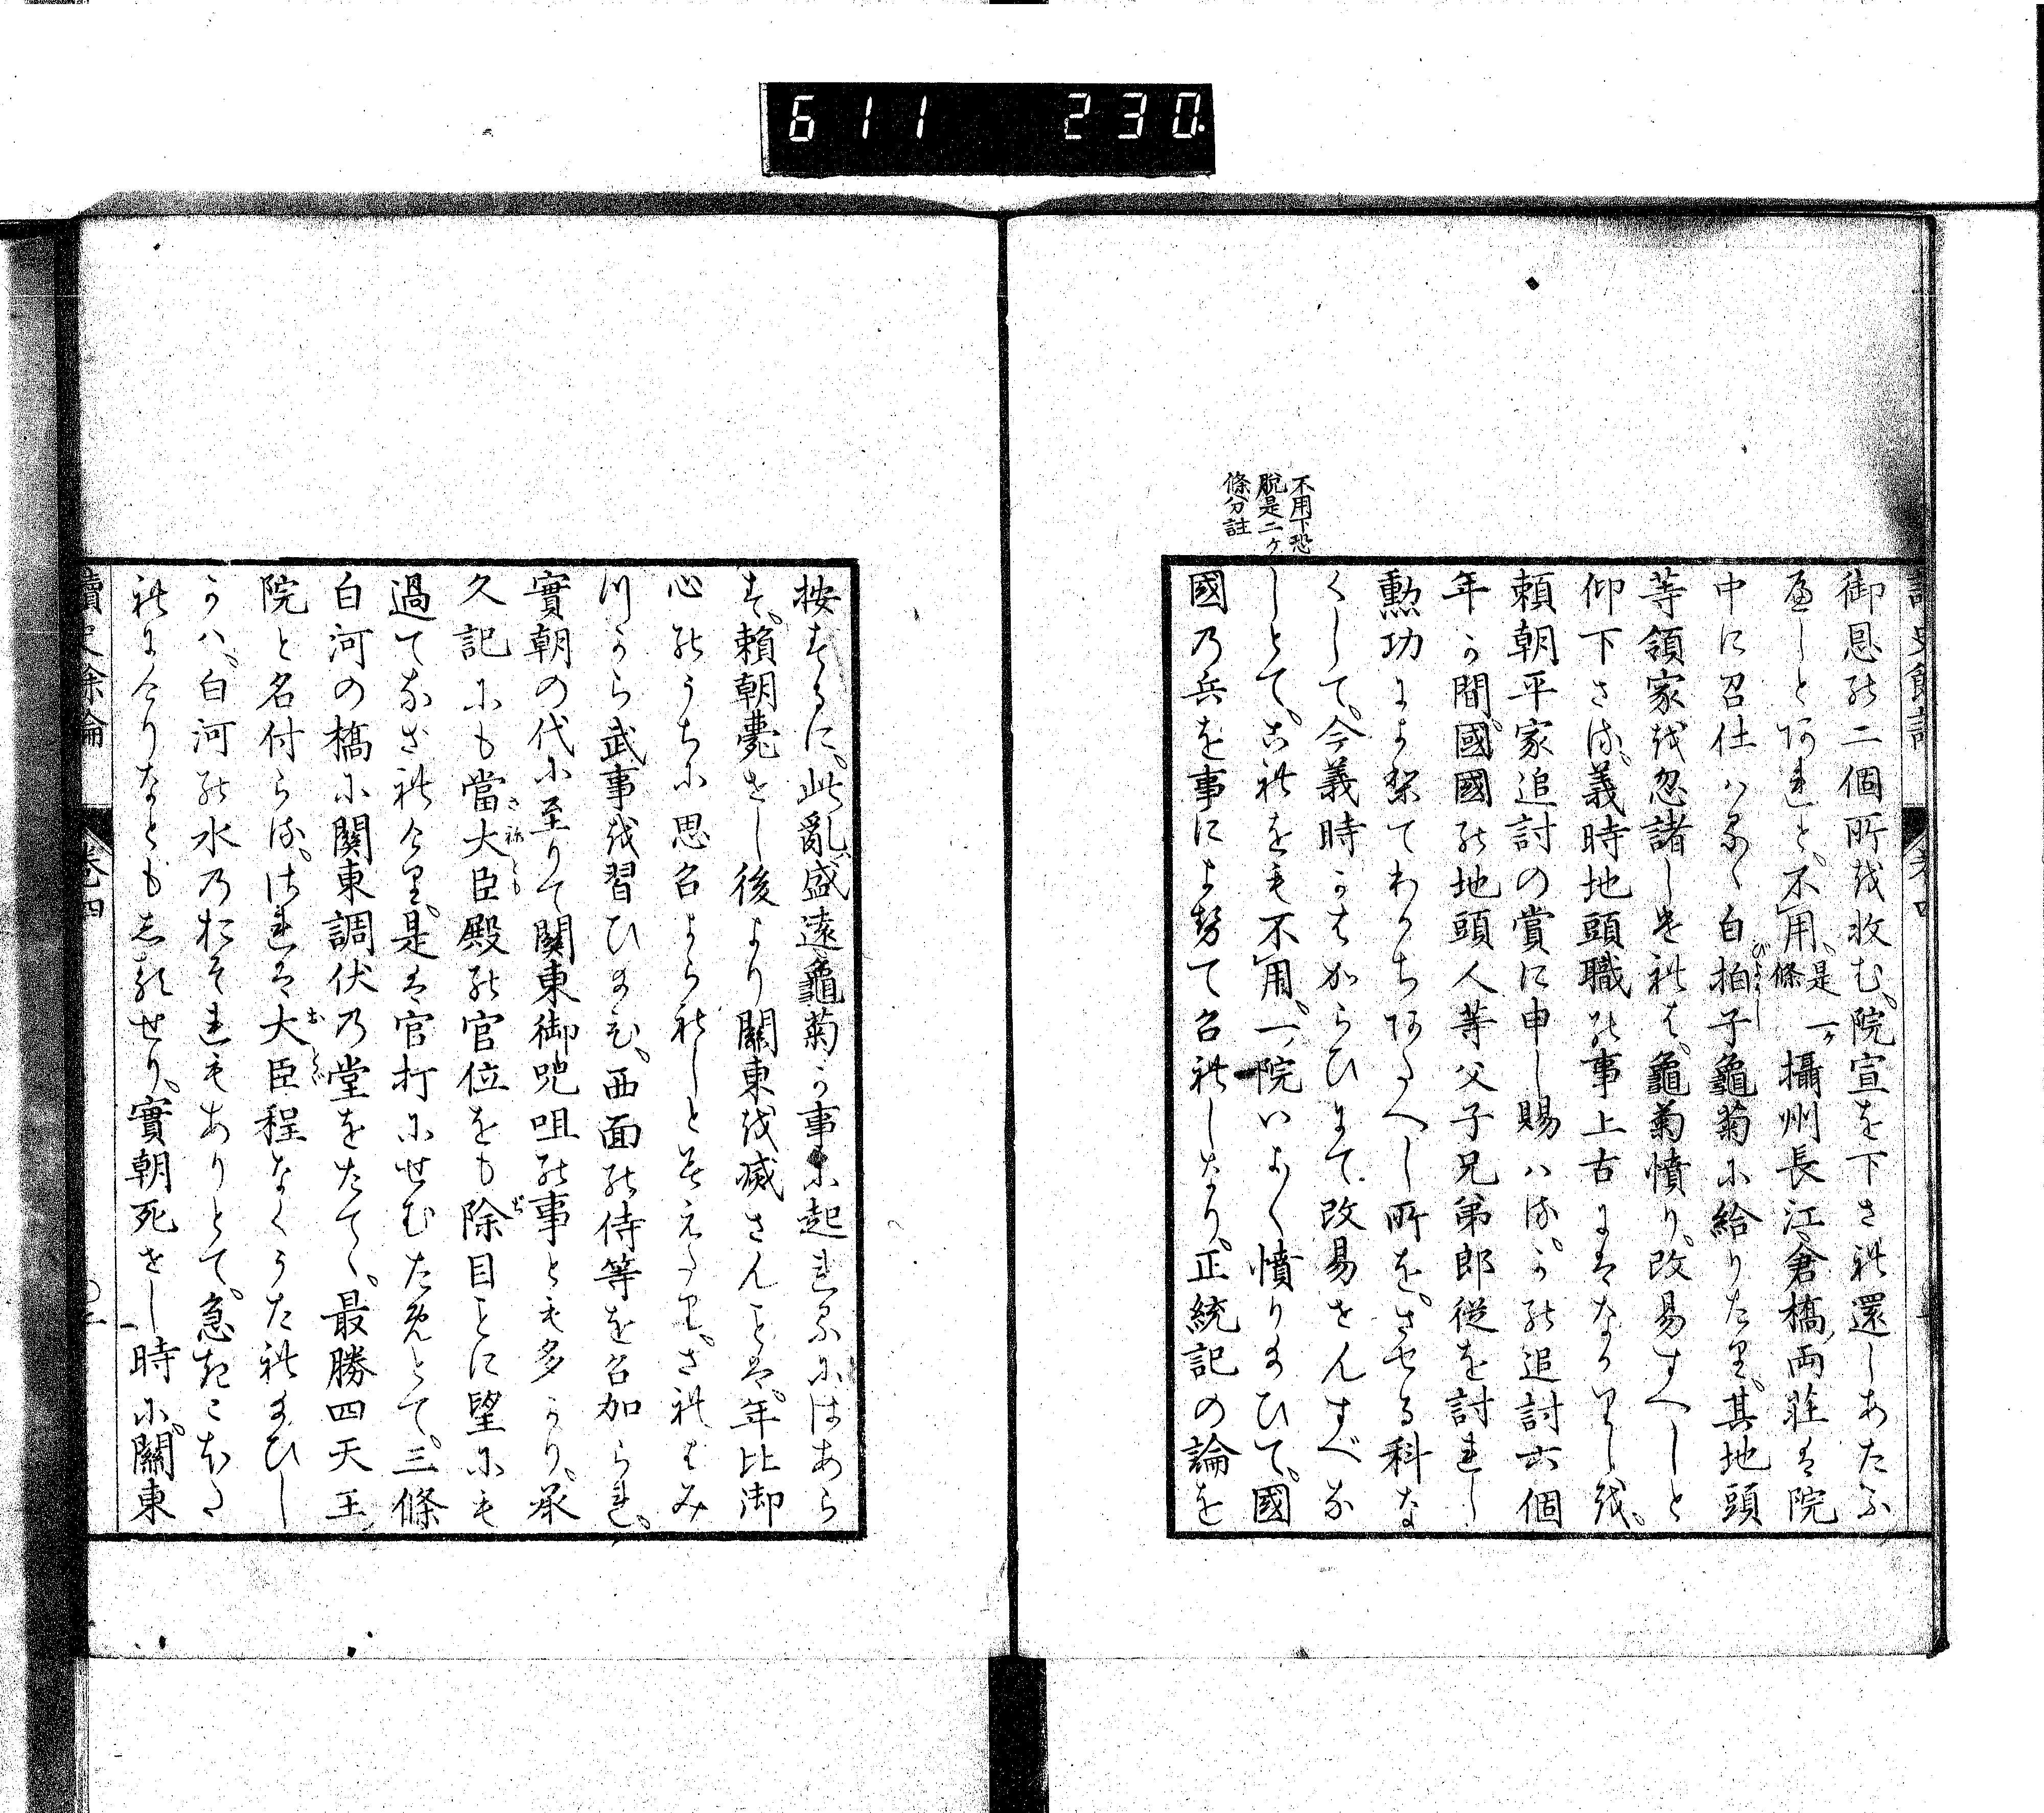 611 230.
御恩の二個所を收む。院宣を下され還しあたふ
へしとあれと、不用、是一ケ條 攝州長江倉橋兩莊は院
中に召仕ハるゝ白拍子龜菊に給りたり。其地頭
等領家を忽諸しければ、龜菊憤り、改易すへしと
仰下さる。義時地頭職の事上古にはなかりしを。
頼朝平家追討の賞に申し賜ハる。かの追討六個
年か間。國國の地頭人等父子兄弟郎從を討れし
勲功によりてわかちあたへし所を。させる科な
くして。今義時かはからひにて改易せんすべな
しとて。これをも不用。一院いよ〱憤り給ひて。國
國の兵を事によせて召れしなり。正統記の論を
不用下恐
脱是二ケ
條分註
按するに。此亂盛遠龜菊か事に起れるにはあら
す。頼朝薨せし後より關東を滅さんことは。年比御
心のうちに思召よられしと見えたり。されはみ
つから武事を習ひ給ひ。西面の侍等を召加られ。
實朝の代に至りて關東御咒咀の事とも多かり。承
久記にも當大臣殿の官位をも除目ことに望にも
過てなされけり。是は官打にせむためとて。三條
白河の橋に關東調伏の堂をたてゝ。最勝四天王
院と名付らる。されは大臣程なくうたれ給ひし
かハ。白河の水のおそれもありとて。急きこほた
れにけりなともしるせり。實朝死せし時に。關東
讀史餘論 卷四